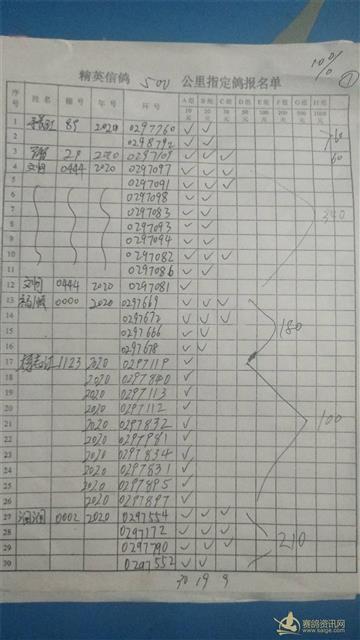 10%
①
精英信鸽 500 公里指定鸽报名单
序号 姓名 棚号 年号 环号 A组10元 B组20元 C组30元 D组50元 E组100元 F组200元 G组500元 H组1000元
1 89 2020 0297760 ✓ ✓
2 0298792 ✓ ✓
3 29 2020 0297109 ✓ ✓ ✓ 60
4 0444 2020 0297097 ✓ ✓ ✓
5 0297091 ✓ ✓ ✓
6 0297098 ✓ ✓
7 0297083 ✓ ✓
8 0297093 ✓ ✓
9 0297094 ✓ ✓
10 0297082 ✓ ✓ ✓
11 0297086 ✓ ✓
12 0444 2020 0297081 ✓
13 0000 2020 0297669 ✓ ✓ ✓
14 0297672 ✓ ✓ ✓
180
15 0297666 ✓ ✓
16 0297678 ✓ ✓
17 1123 2020 0297119 ✓
18 2020 0297840 ✓
19 2020 0297113 ✓
20 2020 0297112 ✓
21 2020 0297832 ✓ 100
22 2020 0297981 ✓
23 2020 0297834 ✓
24 2020 0297831 ✓
25 2020 0297895 ✓
26 2020 0297897 ✓
27 0002 2020 0297554 ✓ ✓ ✓
28 0297172 ✓ ✓ ✓
29 0297790 ✓ ✓ ✓ 210
30 0297552 ✓ ✓
30 19 9
赛鸽资讯网
www.saige.com